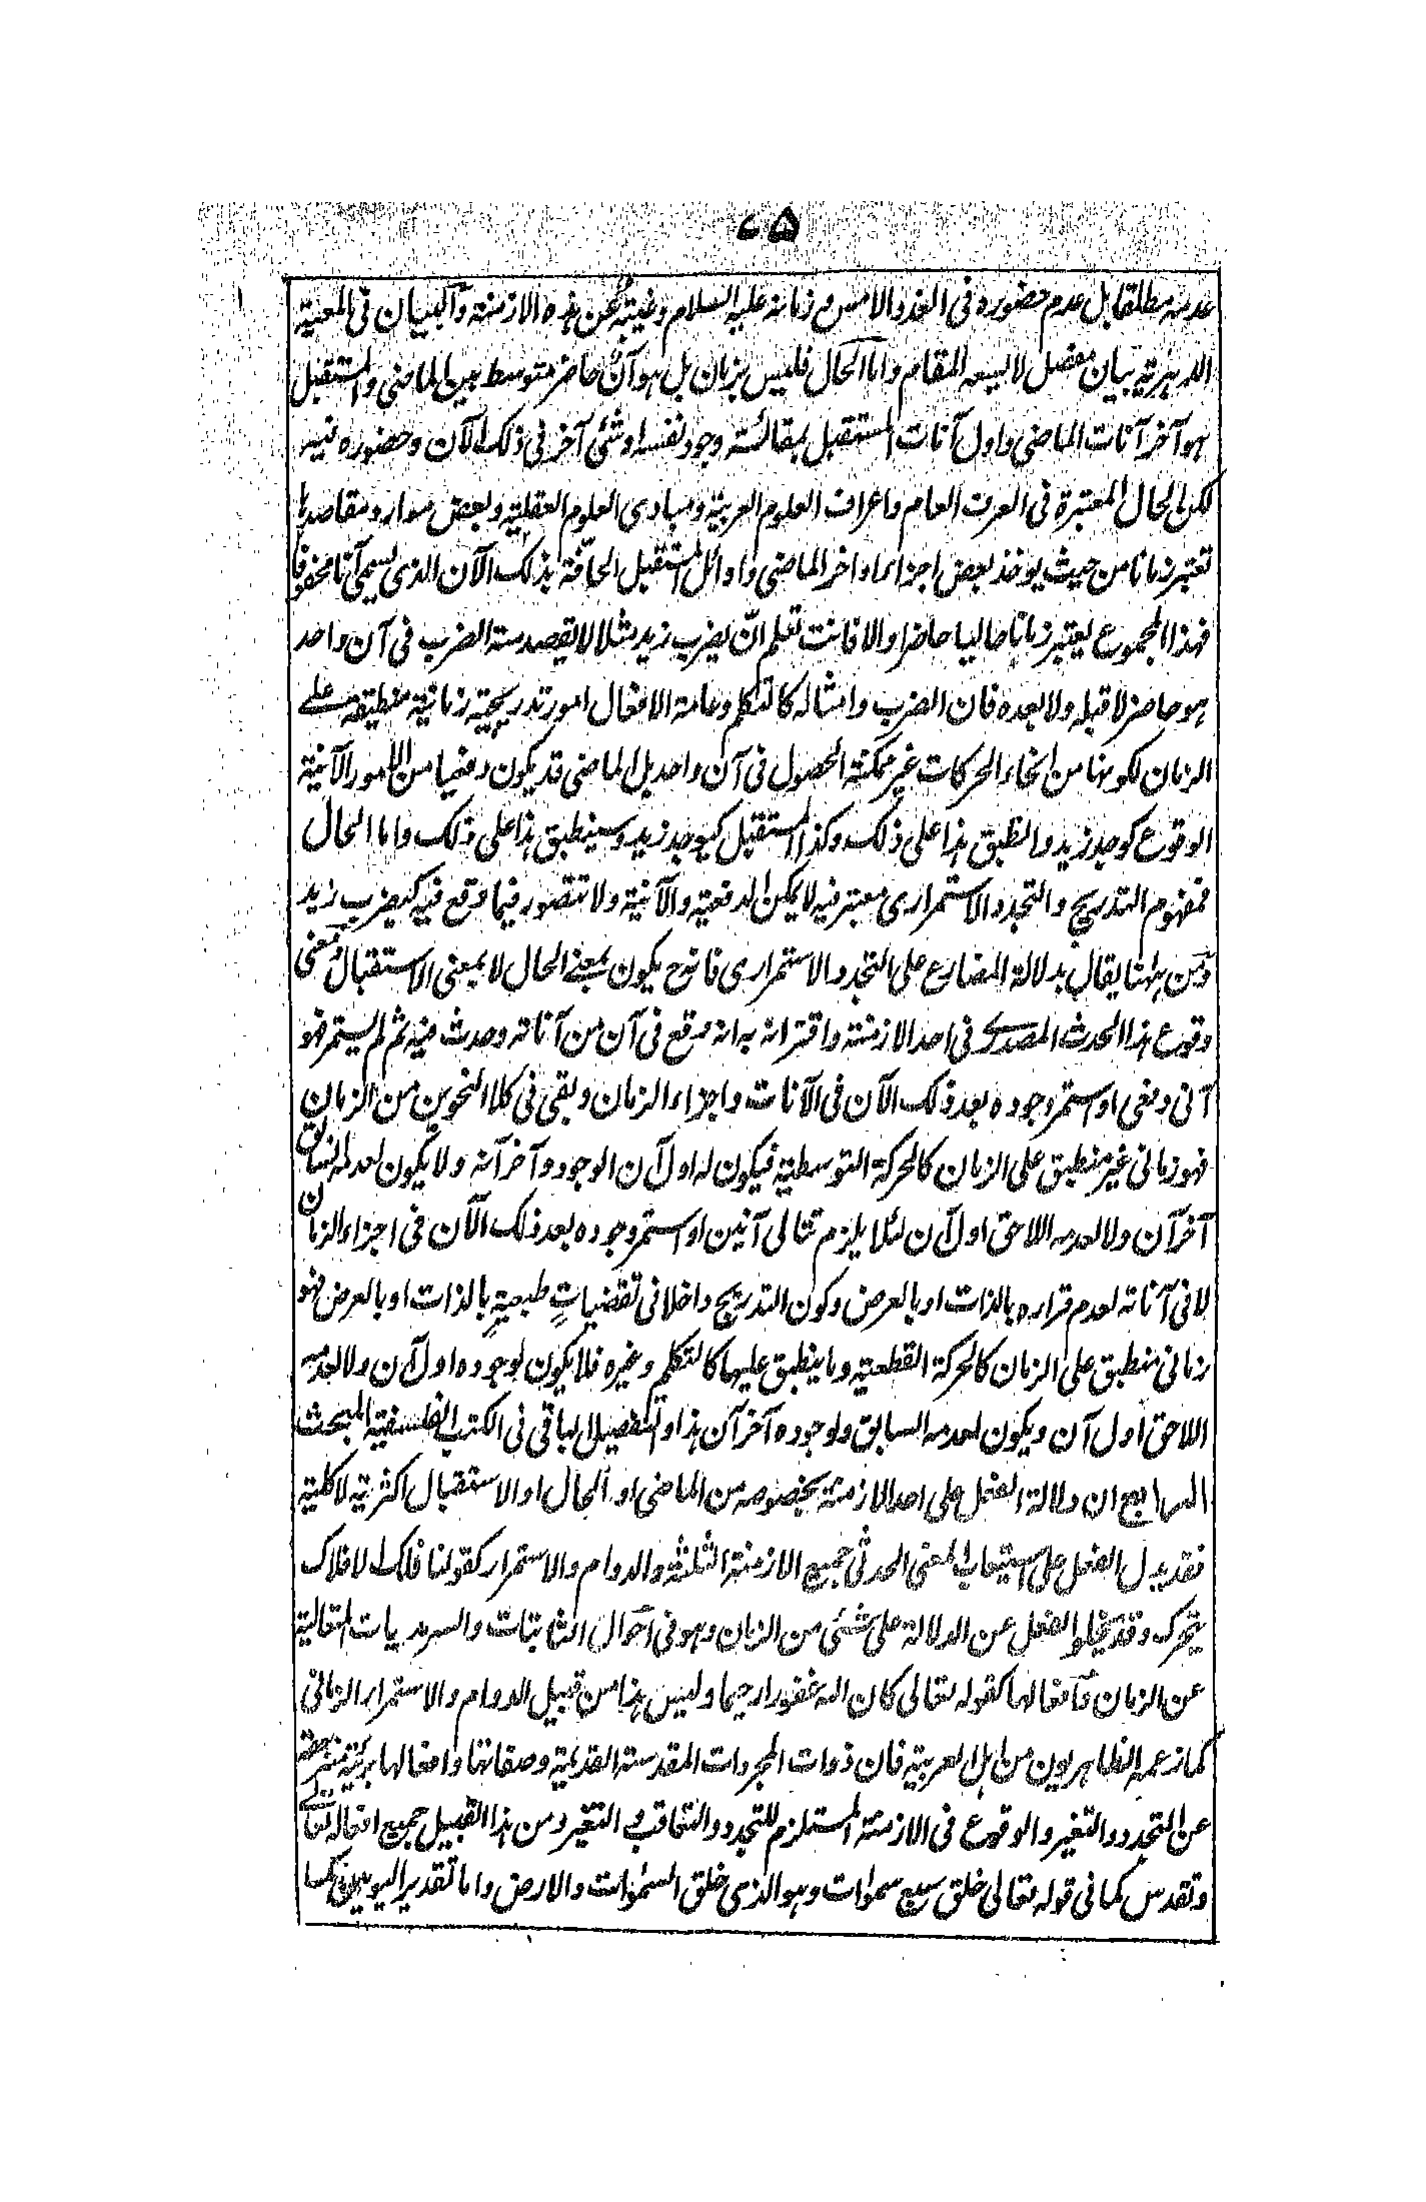 ٥
عدمه مطلقا بل عدم حضوره فى الغد والامس و زمانه عليه السلام وغيبته عن هذه الازمنة والبيان فى المعية
الدهرية بيان مفصل لا يسعه المقام واما الحال فليس بزمان بل هو آن حاضر متوسط بين الماضى والمستقبل
هو آخر آنات الماضى واول آنات المستقبل وجود نفسه او شئ آخر فى ذلك الآن وحضوره فيه
لكن الحال المعتبرة فى العرف العام واعراف العلوم العربية ومبادى العلوم العقلية وبعض موارد مقاصدها
تعتبر زمانا من حيث يوخذ بعض اجزاء اواخر الماضى واوائل المستقبل الحافة بذلك الآن الذى يسمى آنا محفوفا
فهذا المجموع يعتبر زمانا حاليا حاضرا والا فانت تعلم ان يضرب زيد مثلا لا يقصد منه الضرب فى آن واحد
هو حاضر لا قبله ولا بعده فان الضرب وامثاله كالتكلم وعامة الافعال امور تدريجية زمانية منطبقة على
الزمان لكونها من انحاء الحركات غير ممكنة الحصول فى آن واحد بل الماضى قد يكون دفعيا من الامور الآنية
الوقوع كوجد زيد وانطبق هذا على ذلك وكذا المستقبل كيوجد زيد وسينطبق هذا على ذلك واما الحال
فمفهوم التدريج والتجدد الاستمرارى معتبر فيه لا يمكن الدفعية والآنية ولا تتصور فيما وقع فيه كيضرب زيد
ومن ههنا يقال بدلالة المضارع على التجدد الاستمرارى فانه ح يكون بمعنى الحال لا بمعنى الاستقبال ومعنى
وقوع هذا الحدث المصدرى فى احد الازمنة واقترانه به انه وقع فى آن من آناته وحدث فيه ثم لم يستمر فهو
آنى دفعى او استمر وجوده بعد ذلك الآن فى الآنات واجزاء الزمان وبقى فى كلا النحوين من الزمان
فهو زمانى غير منطبق على الزمان كالحركة التوسطية فيكون له اول آن الوجود وآخر آنه ولا يكون لعدمه السابق
آخر آن ولا لعدمه اللاحق اول آن لئلا يلزم تتالى آنين او استمر وجوده بعد ذلك الآن فى اجزاء الزمان
لا فى آناته لعدم قراره بالذات او بالعرض وكون التدريج داخلا فى تقضيات طبعية بالذات او بالعرض فهو
زمانى منطبق على الزمان كالحركة القطعية وما ينطبق عليها كالتكلم وغيره فلا يكون لوجوده اول آن ولا لعدمه
اللاحق اول آن ويكون لعدمه السابق ولوجوده آخر آن هذا والتفصيل الباقى فى الكتب الفلسفية المبحث
الرابع ان دلالة الفعل على احد الازمنة بخصوصه من الماضى او الحال او الاستقبال اكثرية لا كلية
فقد يدل الفعل على استيعاب المعنى الحدثى جميع الازمنة الثلثة والدوام والاستمرار كقولنا فلك الافلاك
يتحرك وقد يخلو الفعل عن الدلالة على شئ من الزمان وهو فى احوال الثابتات والسرمديات المتعالية
عن الزمان وافعالها كقوله تعالى كان الله غفورا رحيما وليس هذا من قبيل الدوام والاستمرار الزمانى
كما زعمه الظاهريون من اهل العربية فان ذوات المجردات المقدسة القديمة وصفاتها وافعالها بريئة منزهة
عن التجدد والتغير والوقوع فى الازمنة المستلزم للتجدد والتعاقب و التغير ومن هذا القبيل جميع افعاله تعالى
وتقدس كما فى قوله تعالى خلق سبع سموات وهو الذى خلق السموات والارض واما تقدير اليومين كما